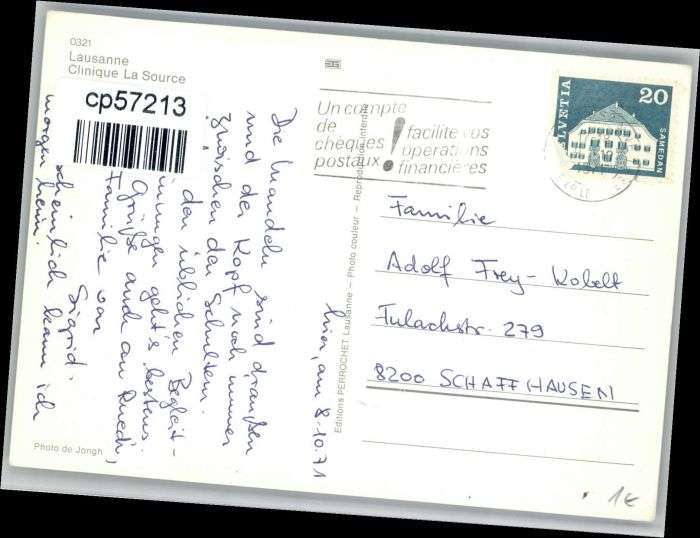 0321
Lausanne
Clinique La Source
cp57213
Un compte
de
chèques
postaux
! facilite vos
opérations
financières
HELVETIA
20
SAMEDAN
hier, am 8.10.71
Die Mandeln sind draußen
und der Kopf noch immer
zwischen den Schultern.
den üblichen Begleit-
geht's bestens.
Grüße auch an Ruedi,
Familie von
Sigrid.
scheinlich kann ich
morgen heim.
Editions PERROCHET Lausanne – Photo couleur – Reproduction interdite
Familie
Adolf Frey-Kobelt
Fulachstr. 279
8200 SCHAFFHAUSEN
Photo de Jongh
1€